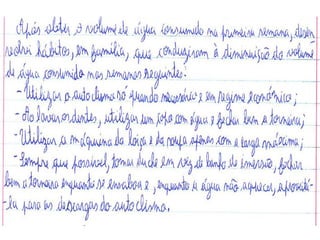 Após obter o volume de água consumido na primeira semana, desen-
volvi hábitos, em família, que conduziram à diminuição do volume
de água consumido nas semanas seguintes:
- Utilizar o autoclismo só quando necessário e em regime económico;
- Ao lavar os dentes, utilizar um copo com água e fechar bem a torneira;
- Utilizar a máquina da loiça e da roupa apenas com a carga máxima;
- Sempre que possível, tomar duche em vez de banho de imersão, fechar
bem a torneira enquanto se ensaboa e, enquanto a água não aquecer, aproveitá-
-la para as descargas do autoclismo.